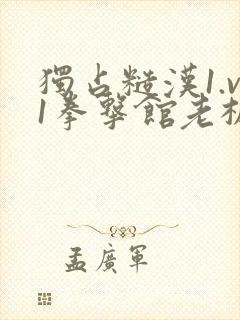 獨占糙漢1.v
1拳擊館老板
孟廣軍